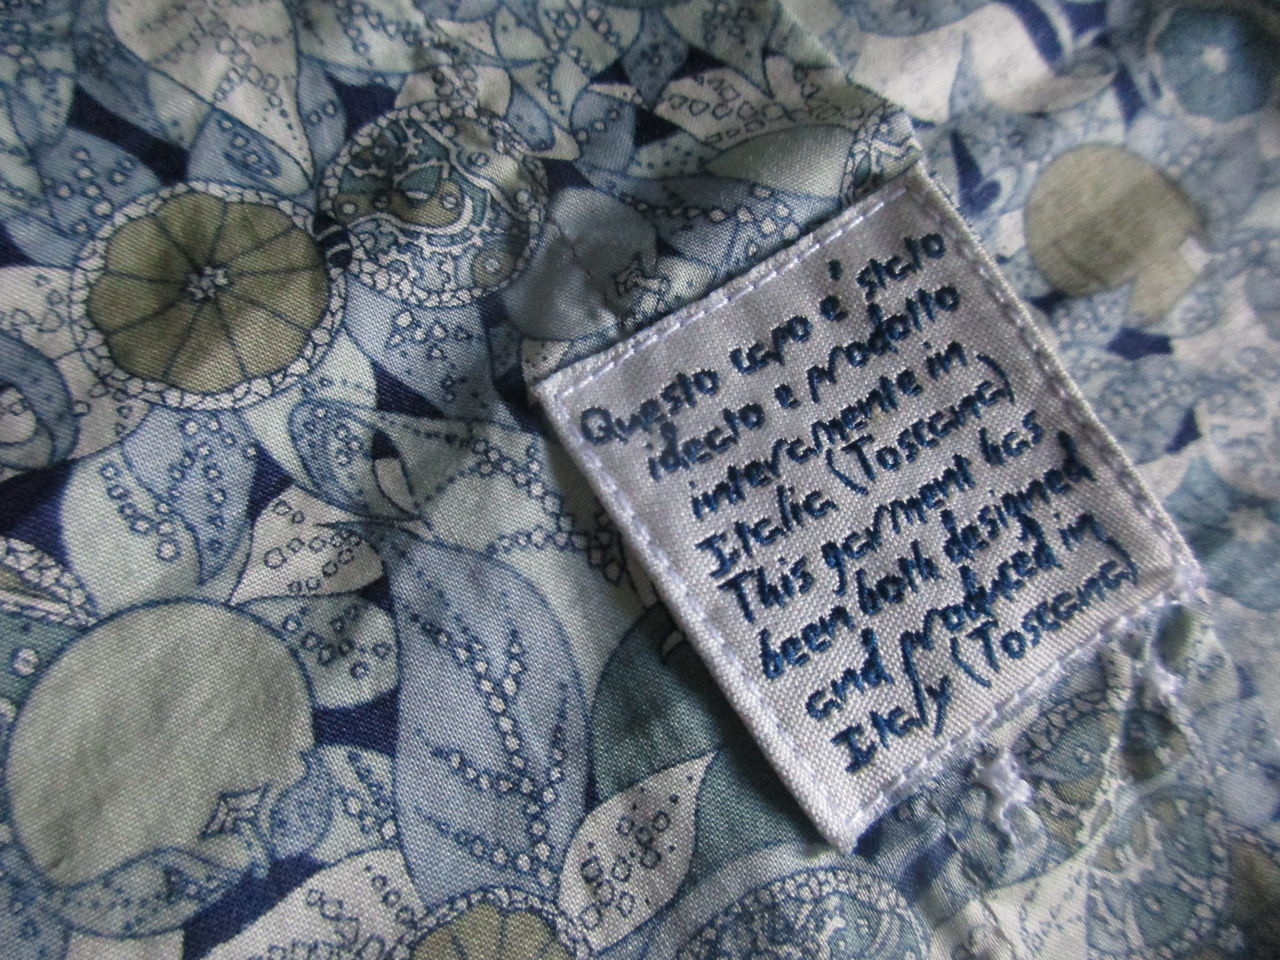 Questo capo è stato
ideato e prodotto
interamente in
Italia (Toscana)
This garment has
been both designed
and produced in
Italy (Toscana)